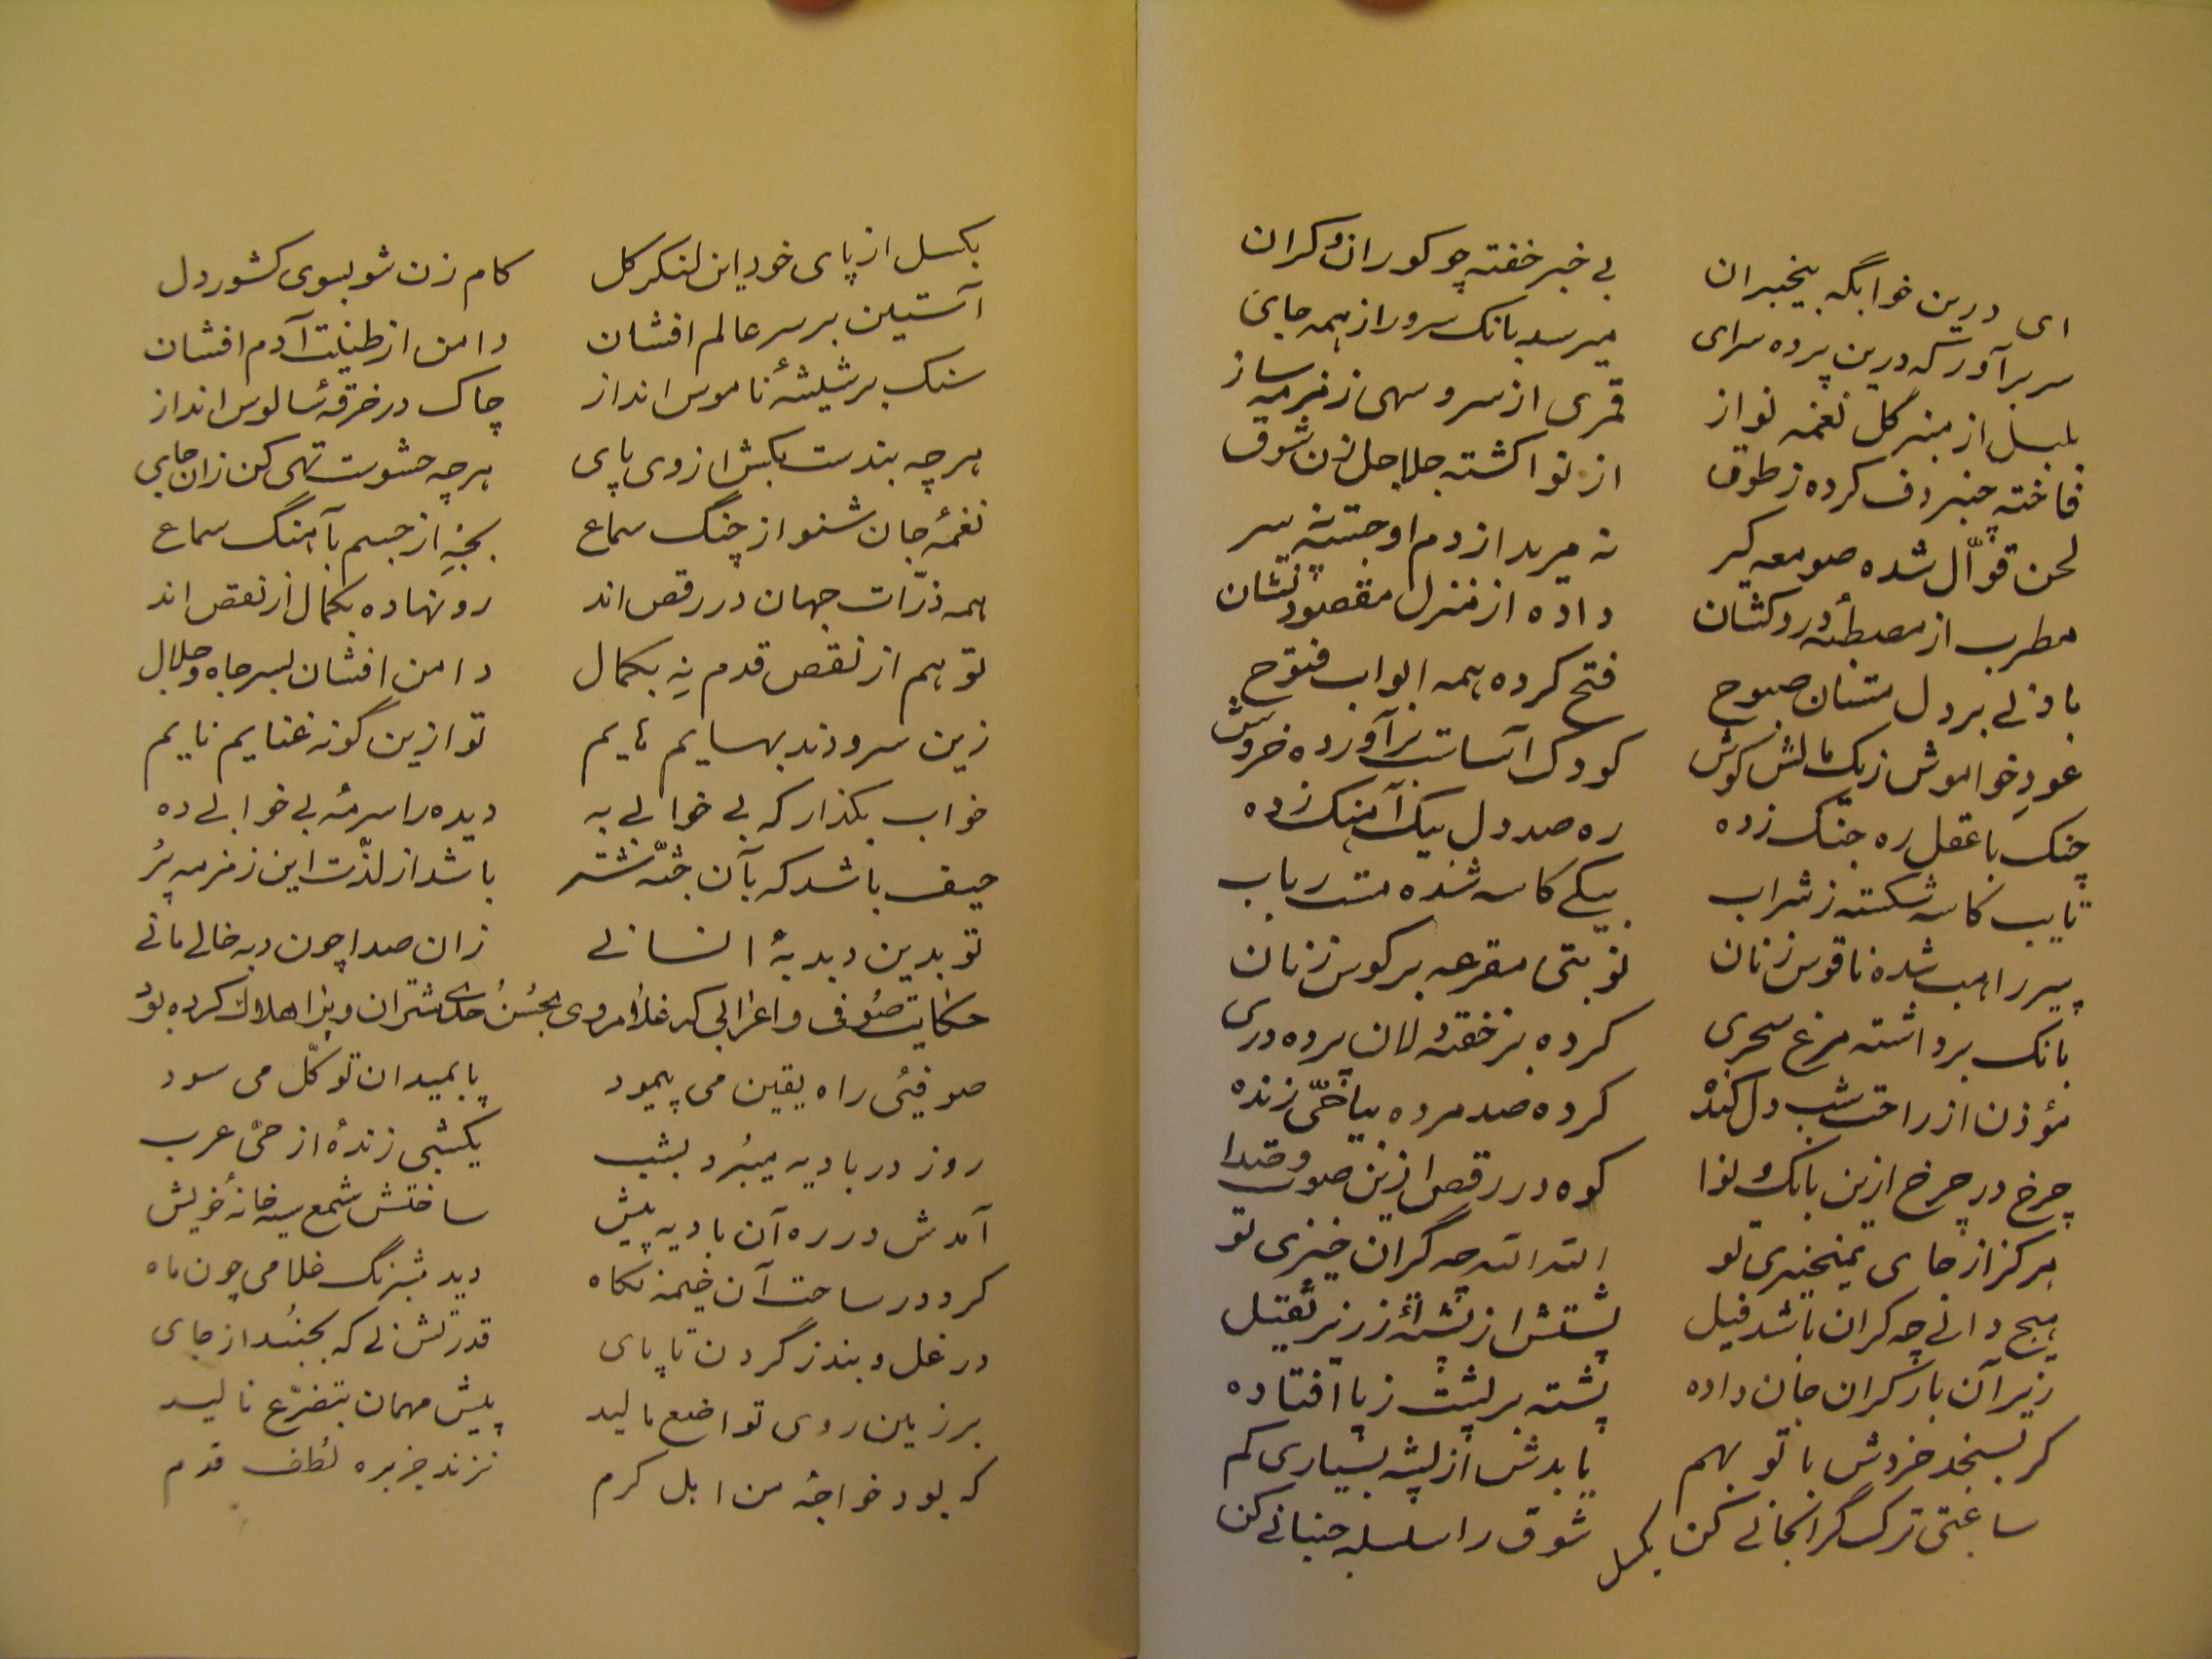 ای درین خوابگه بیخبران بی خبر خفته چو کوران و کران
سر برآور که درین پرده سرای میرسد بانک سرور از همه جای
بلبل از منبر گل نغمه نواز قمری از سرو سهی زمزمه ساز
فاخته چنبر دف کرده ز طوق از نوا کشته جلاجل زن شوق
لحن قوّال شده صومعه کیر نه مرید از دم او جسته نه پیر
مطرب از مصطبهٔ دردکشان داده از منزل مقصود نشان
بادنی بر دل مستان صبوح فتح کرده همه ابواب فتوح
عودِ خواموش ز یک مالش کوش کودک آسا شب برآورده خروش
چنک با عقل ره جنک زده ره صد دل بیک آهنک زده
تایب کاسه شکسته ز شراب بیکی کاسه شده مست رباب
پیر راهب شده ناقوس زنان نوبتی مقرعه بر کوس زنان
بانک برداشته مرغ سحری کرده بر خفته دلان پرده دری
مؤذن از راحت شب دل کنده کرده صد مرده بیاحَیّ زنده
چرخ در چرخ ازین بانک و نوا کوه در رقص ازین صوت و صدا
هرکز از جای نمیخیزی تو الله الله چه گران خیزی تو
هیچ دانی چه کران باشد فیل پشتش از پشتهٔ زر زیر ثقیل
زیر آن بار کران جان داده پشته بر پشت ز پا افتاده
کر بسنجد خردش با تو بهم یابدش از پشه بسیاری کم
ساعتی ترک گرانجانی کن شوق را سلسله جنبانی کن
بکسل
بکسل از پای خود این لنکر کل کام زن شو بسوی کشور دل
آستین بر سر عالم افشان دامن از طینت آدم افشان
سنک بر شیشهٔ ناموس انداز چاک در خرقهٔ سالوس انداز
هر چه بندست بکش از وی پای هر چه حشوست تهی کن زان جای
نغمهٔ جان شنو از چنگ سماع بجَهِ از جسم بآهنگ سماع
همه ذرّات جهان در رقص اند رو نهاده بکمال از نقص اند
تو هم از نقص قدم نِه بکمال دامن افشان بسر جاه و جلال
زین سرودند بهایم هایم تو ازین گونه غنایم نایم
خواب بکذار که بی خوابی به دیده را سرمهٔ بی خوابی ده
حیف باشد که بآن جثّه شتر باشد از لذّت این زمزمه پُر
تو بدین دبدبهٔ انسانی زان صدا چون دبه خالی مانی
حکایت صوُفی و اعرابی که غلام وی بحُسُن حدی شتران ویرا هلاک کرده بود
صوفئی راه یقین می پیمود پا بمیدان توکّل می سود
روز در بادیه میبُرد بشب یکشبی زندهٔ از حیّ عرب
آمدش در ره آن بادیه پیش ساختش شمع سیه خانهٔ خویش
کرد در ساحت آن خیمه نکاه دید شبرنگ غلامی چون ماه
در غل و بند ز گردن تا پای قدرتش نی که بجنبُد از جای
بر زمین روی تواضع مالید پیش مهمان بتضرّع نالید
که بود خواجهٔ من اهل کرم نزند جز بره لطف قدم